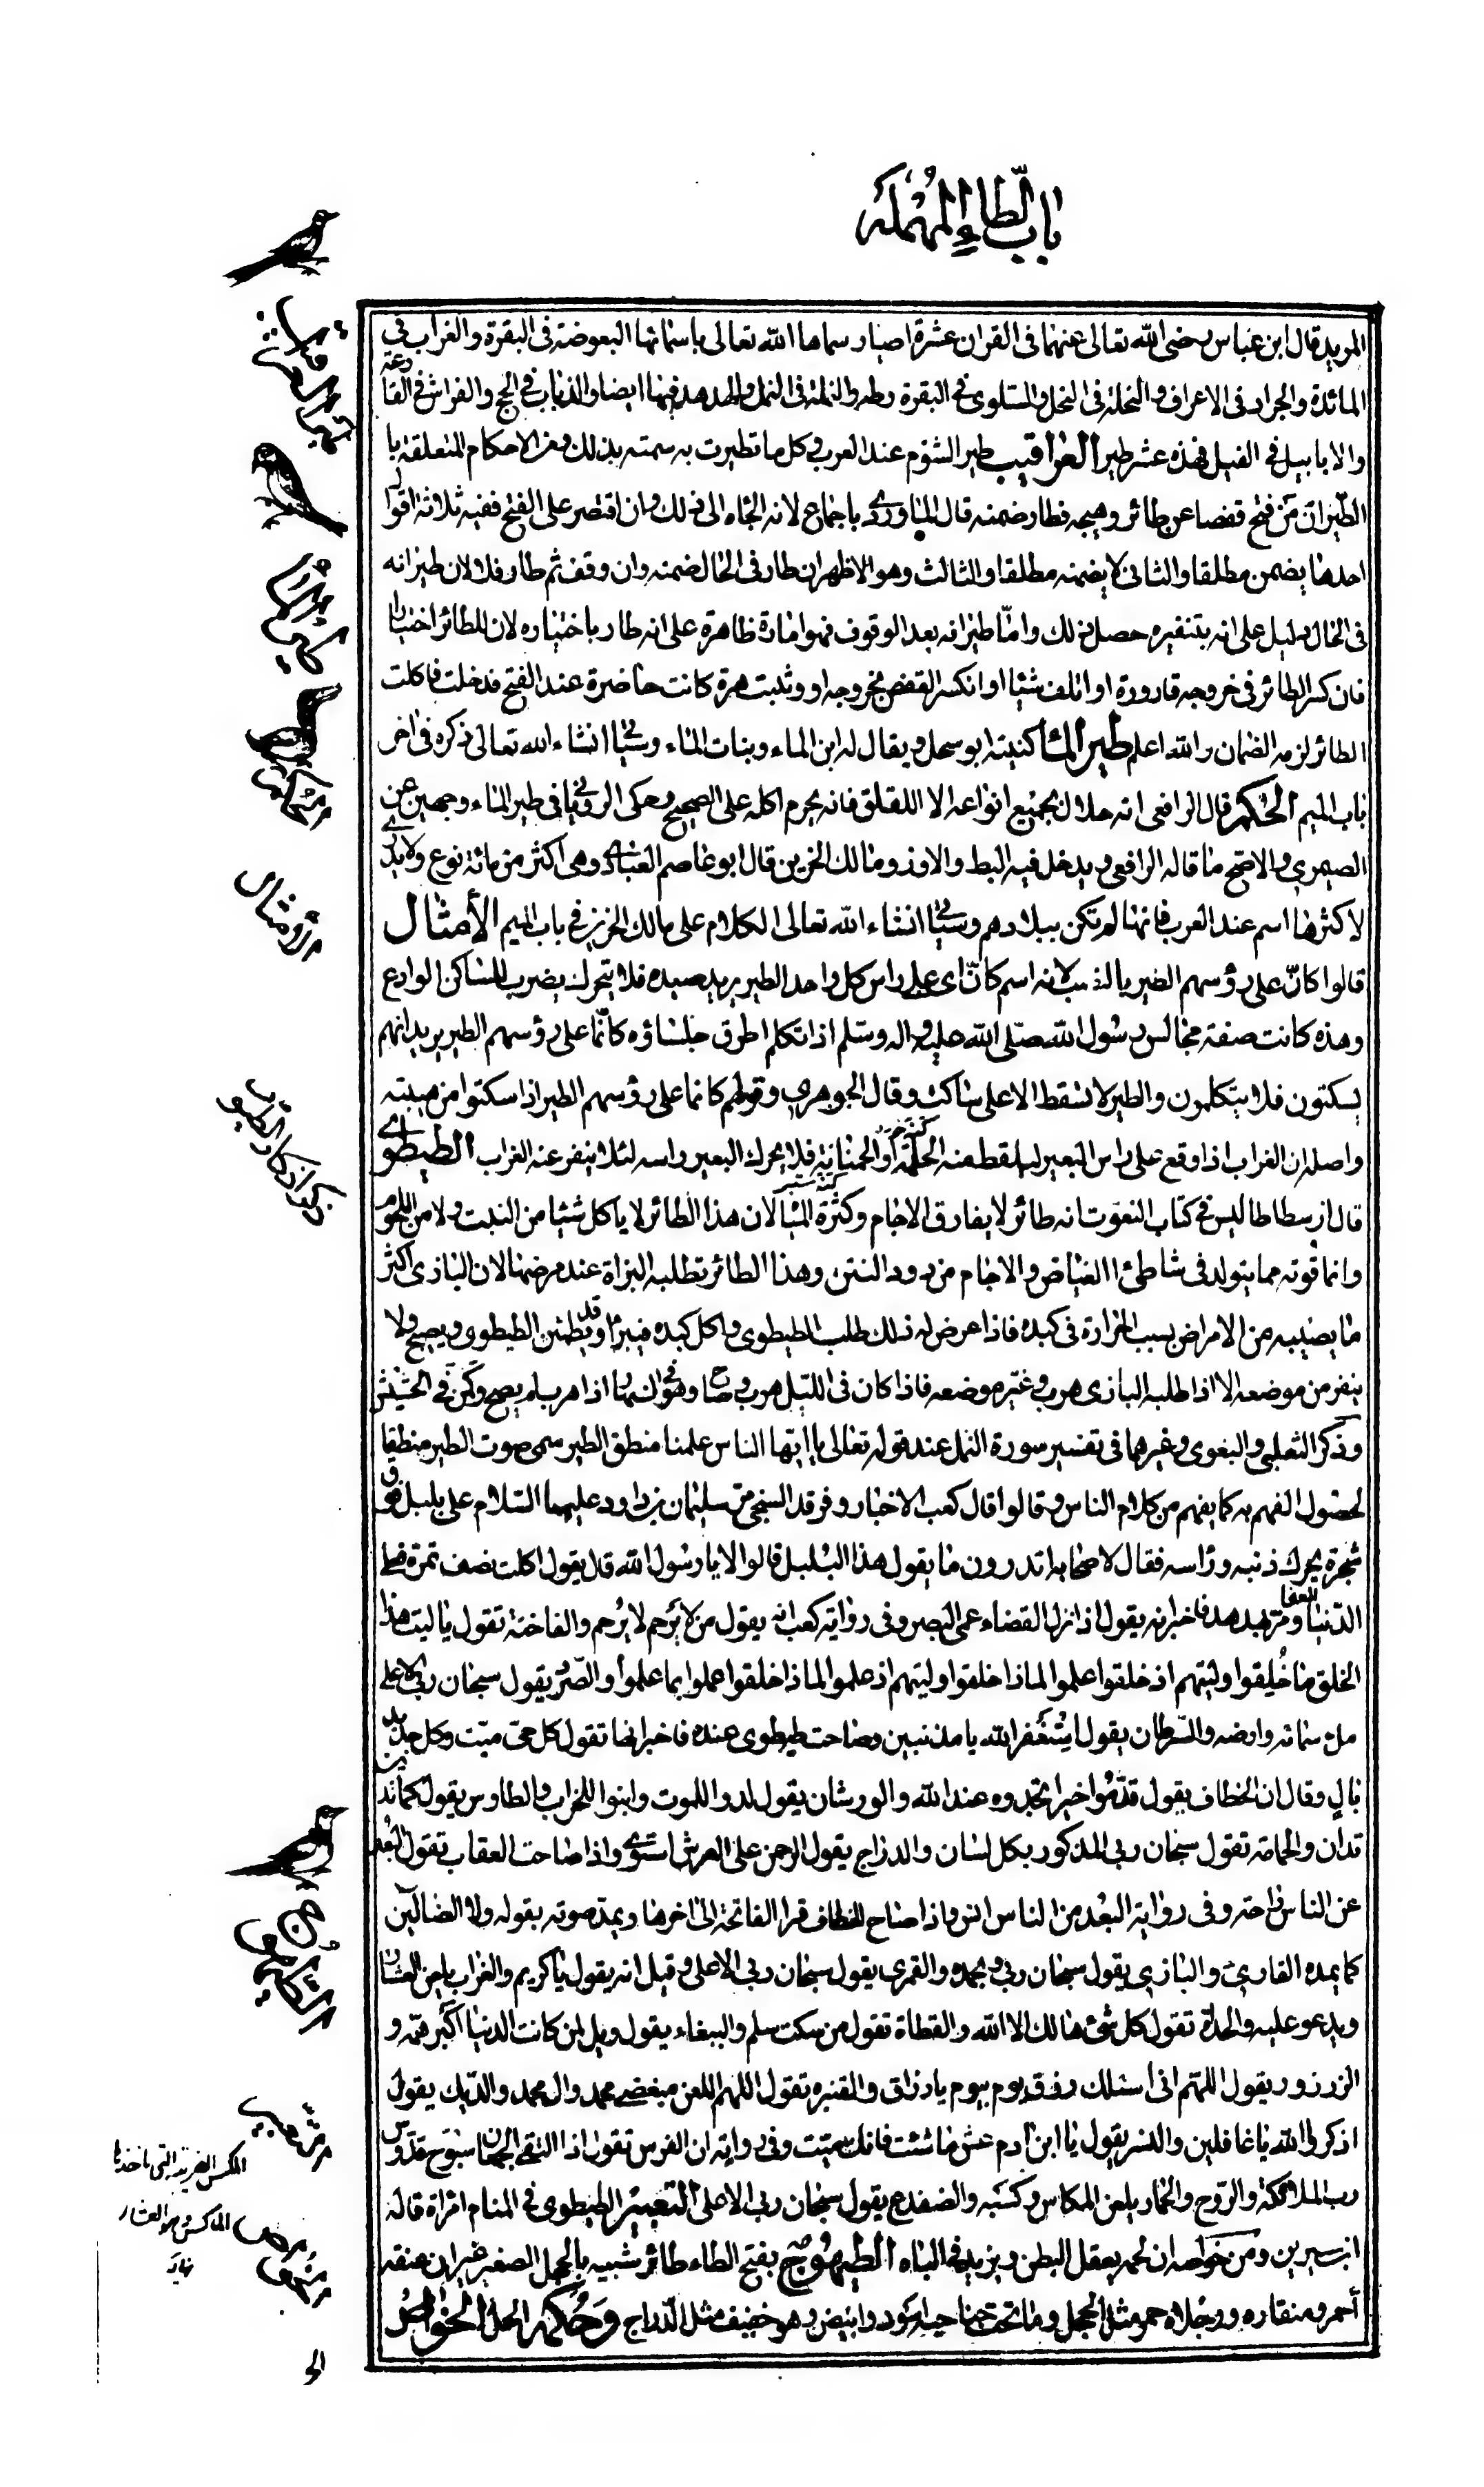 باب الطاء المهملة
المريد قال ابن عباس رضى الله تعالى عنهما فى القران عشرة اطيار سماها الله تعالى باسمائها البعوضة فى البقرة والغراب فى
المائدة والجراد فى الاعراف والنحلة فى النحل والسلوى فى البقرة وطه والنملة فى النمل والهدهد فيها ايضا والذباب فى الحج والفراش فى القارعة
والابابيل فى الفيل فهذه عشر طير العراقيب طير الشؤم عند العرب وكل ما تطيرت به سمته بذلك ومن الاحكام المتعلقة با
لطيران من فتح قفصا عن طائر وهيجه فطار ضمنه قال الماوردى باجماع لانه الجاه الى ذلك وان اقتصر على الفتح ففيه ثلاثة اقوال
احدها يضمن مطلقا والثانى لا يضمنه مطلقا والثالث وهو الاظهر ان طار فى الحال ضمنه وان وقف ثم طار فلا لان طيرانه
فى الحال دليل على انه بتنفيره حصل ذلك واما طيرانه بعد الوقوف فهو امارة ظاهرة على انه طار باختياره لان للطائر اختيارا
فان كسر الطائر فى خروجه قارورة او اتلف شيئا او انكسر القفص بخروجه او وثبت هرة كانت حاضرة عند الفتح فدخلت فاكلت
الطائر لزمه الضمان والله اعلم طير الماء كنيته ابو سحل ويقال له ابن الماء وبنات الماء وسياتى انشاء الله تعالى ذكره فى اخر
باب الميم الحكم قال الرافعى انه حلال بجميع انواعه الا اللقلق فانه يحرم اكله على الصحيح وحكى الرويانى فى طير الماء وجهين عن
الصيمرى والاصح ما قاله الرافعى ويدخل فيه البط والاوز ومالك الحزين قال ابو عاصم العبادى وهى اكثر من مائة نوع ولا يدرى
لاكثرها اسم عند العرب فانها لم تكن ببلادهم وسياتى انشاء الله تعالى الكلام على مالك الحزين فى باب الميم الأمثال
قالوا كانّ على رؤسهم الطير بالنصب لانه اسم كانّ اى على راس كل واحد الطير يريد صيده فلا يتحرك يضرب للساكن الوادع
وهذه كانت صفة مجالس رسول الله صلى الله عليه واله وسلم اذا تكلم اطرق جلساؤه كانما على رؤسهم الطير يريد انهم
يسكتون فلا يتكلمون والطير لا تسقط الا على ساكت وقال الجوهرى وقولهم كانما على رؤسهم الطير اذا سكتوا من هيبته
واصله ان الغراب اذا وقع على راس البعير ليلقط منه الحلمة او الحمنانة فلا يحرك البعير راسه لئلا ينفر عنه الغراب الطيطوى
قال ارسطاطاليس فى كتاب النعوت انه طائر لا يفارق الاجام وكثرة المياه لان هذا الطائر لا ياكل شيئا من النبت ولا من اللحوم
وانما قوته مما يتولد فى شاطئ الغياض والاجام من دود النتن وهذا الطائر تطلبه البزاة عند مرضها لان البازى اكثر
ما يصيبه من الامراض بسبب الحرارة فى كبده فاذا عرض له ذلك طلب الطيطوى واكل كبده فيبرا وقد يطمئن الطيطوى ويصيح ولا
ينفر من موضعه الا اذا طلبه البازى هرب وغير موضعه فاذا كان فى الليل هرب وصاح وهو فى النهار اذا هرب لم يصح وكمن فى الحشيش
وذكر الثعلبى والبغوى وغيرهما فى تفسير سورة النمل عند قوله تعالى يا ايها الناس علمنا منطق الطير سمى صوت الطير منطقا
لحصول الفهم به كما يفهم من كلام الناس وقالوا قال كعب الاحبار وفرقد السنجى مرّ سليمان بن داود عليهما السلام على بلبل فوق
شجرة يحرك ذنبه وراسه فقال لاصحابه اتدرون ما يقول هذا البلبل قالوا لا يا رسول الله قال يقول اكلت نصف تمرة فعلى
الدنيا العفا ومر بهدهد فاخبر انه يقول اذا نزل القضاء عمى البصر وفى رواية كعب انه يقول من لا يرحم لا يرحم والفاختة تقول يا ليت هذا
الخلق ما خلقوا وليتهم اذ خلقوا علموا لماذا خلقوا وليتهم اذ علموا لماذا خلقوا عملوا بما علموا والصرد يقول سبحان ربى الاعلى
ملء سمائه وارضه والسرطان يقول استغفروا الله يا مذنبين وصاحت طيطوى عنده فاخبر انها تقول كل حى ميت وكل جديد
بال وقال ان الخطاف يقول قدموا خيرا تجدوه عند الله والورشان يقول لدوا للموت وابنوا للخراب والطاوس يقول كما تدين
تدان والحمامة تقول سبحان ربى المذكور بكل لسان والدراج يقول الرحمن على العرش استوى واذا صاحت العقاب تقول البعد
عن الناس راحة وفى رواية البعد من الناس انس واذا صاح الخطاف قرا الفاتحة الى اخرها ويمد صوته بقوله ولا الضالين
كما يمده القارى والبازى يقول سبحان ربى وبحمده والقمرى يقول سبحان ربى الاعلى وقيل انه يقول يا كريم والغراب يلعن العشار
ويدعو عليه والحدأة تقول كل شئ هالك الا الله والقطاة تقول من سكت سلم والببغاء يقول ويل لمن كانت الدنيا اكبر همه و
الزرزور يقول اللهم انى اسئلك رزق يوم بيوم يا رزاق والقنبرة تقول اللهم العن مبغضى محمد وال محمد والديك يقول
اذكروا الله يا غافلين والنسر يقول يا ابن ادم عش ما شئت فانك ميت وفى رواية ان الفرس تقول اذا التقى الجمعان سبوح قدوس
رب الملائكة والروح والحمار يلعن المكاس وكسبه والضفدع يقول سبحان ربى الاعلى التعبير الطيطوى فى المنام امراة قاله
ابن سيرين ومن خواصه ان لحمه يعقل البطن ويزيد فى الباه الطيهوج بفتح الطاء طائر شبيه بالحجل الصغير غير ان عنقه
احمر ومنقاره ورجلاه حمر مثل الحجل وما تحت جناحيه اسود وابيض وهو خفيف مثل الدراج وحكمه الحل الخواص
الى